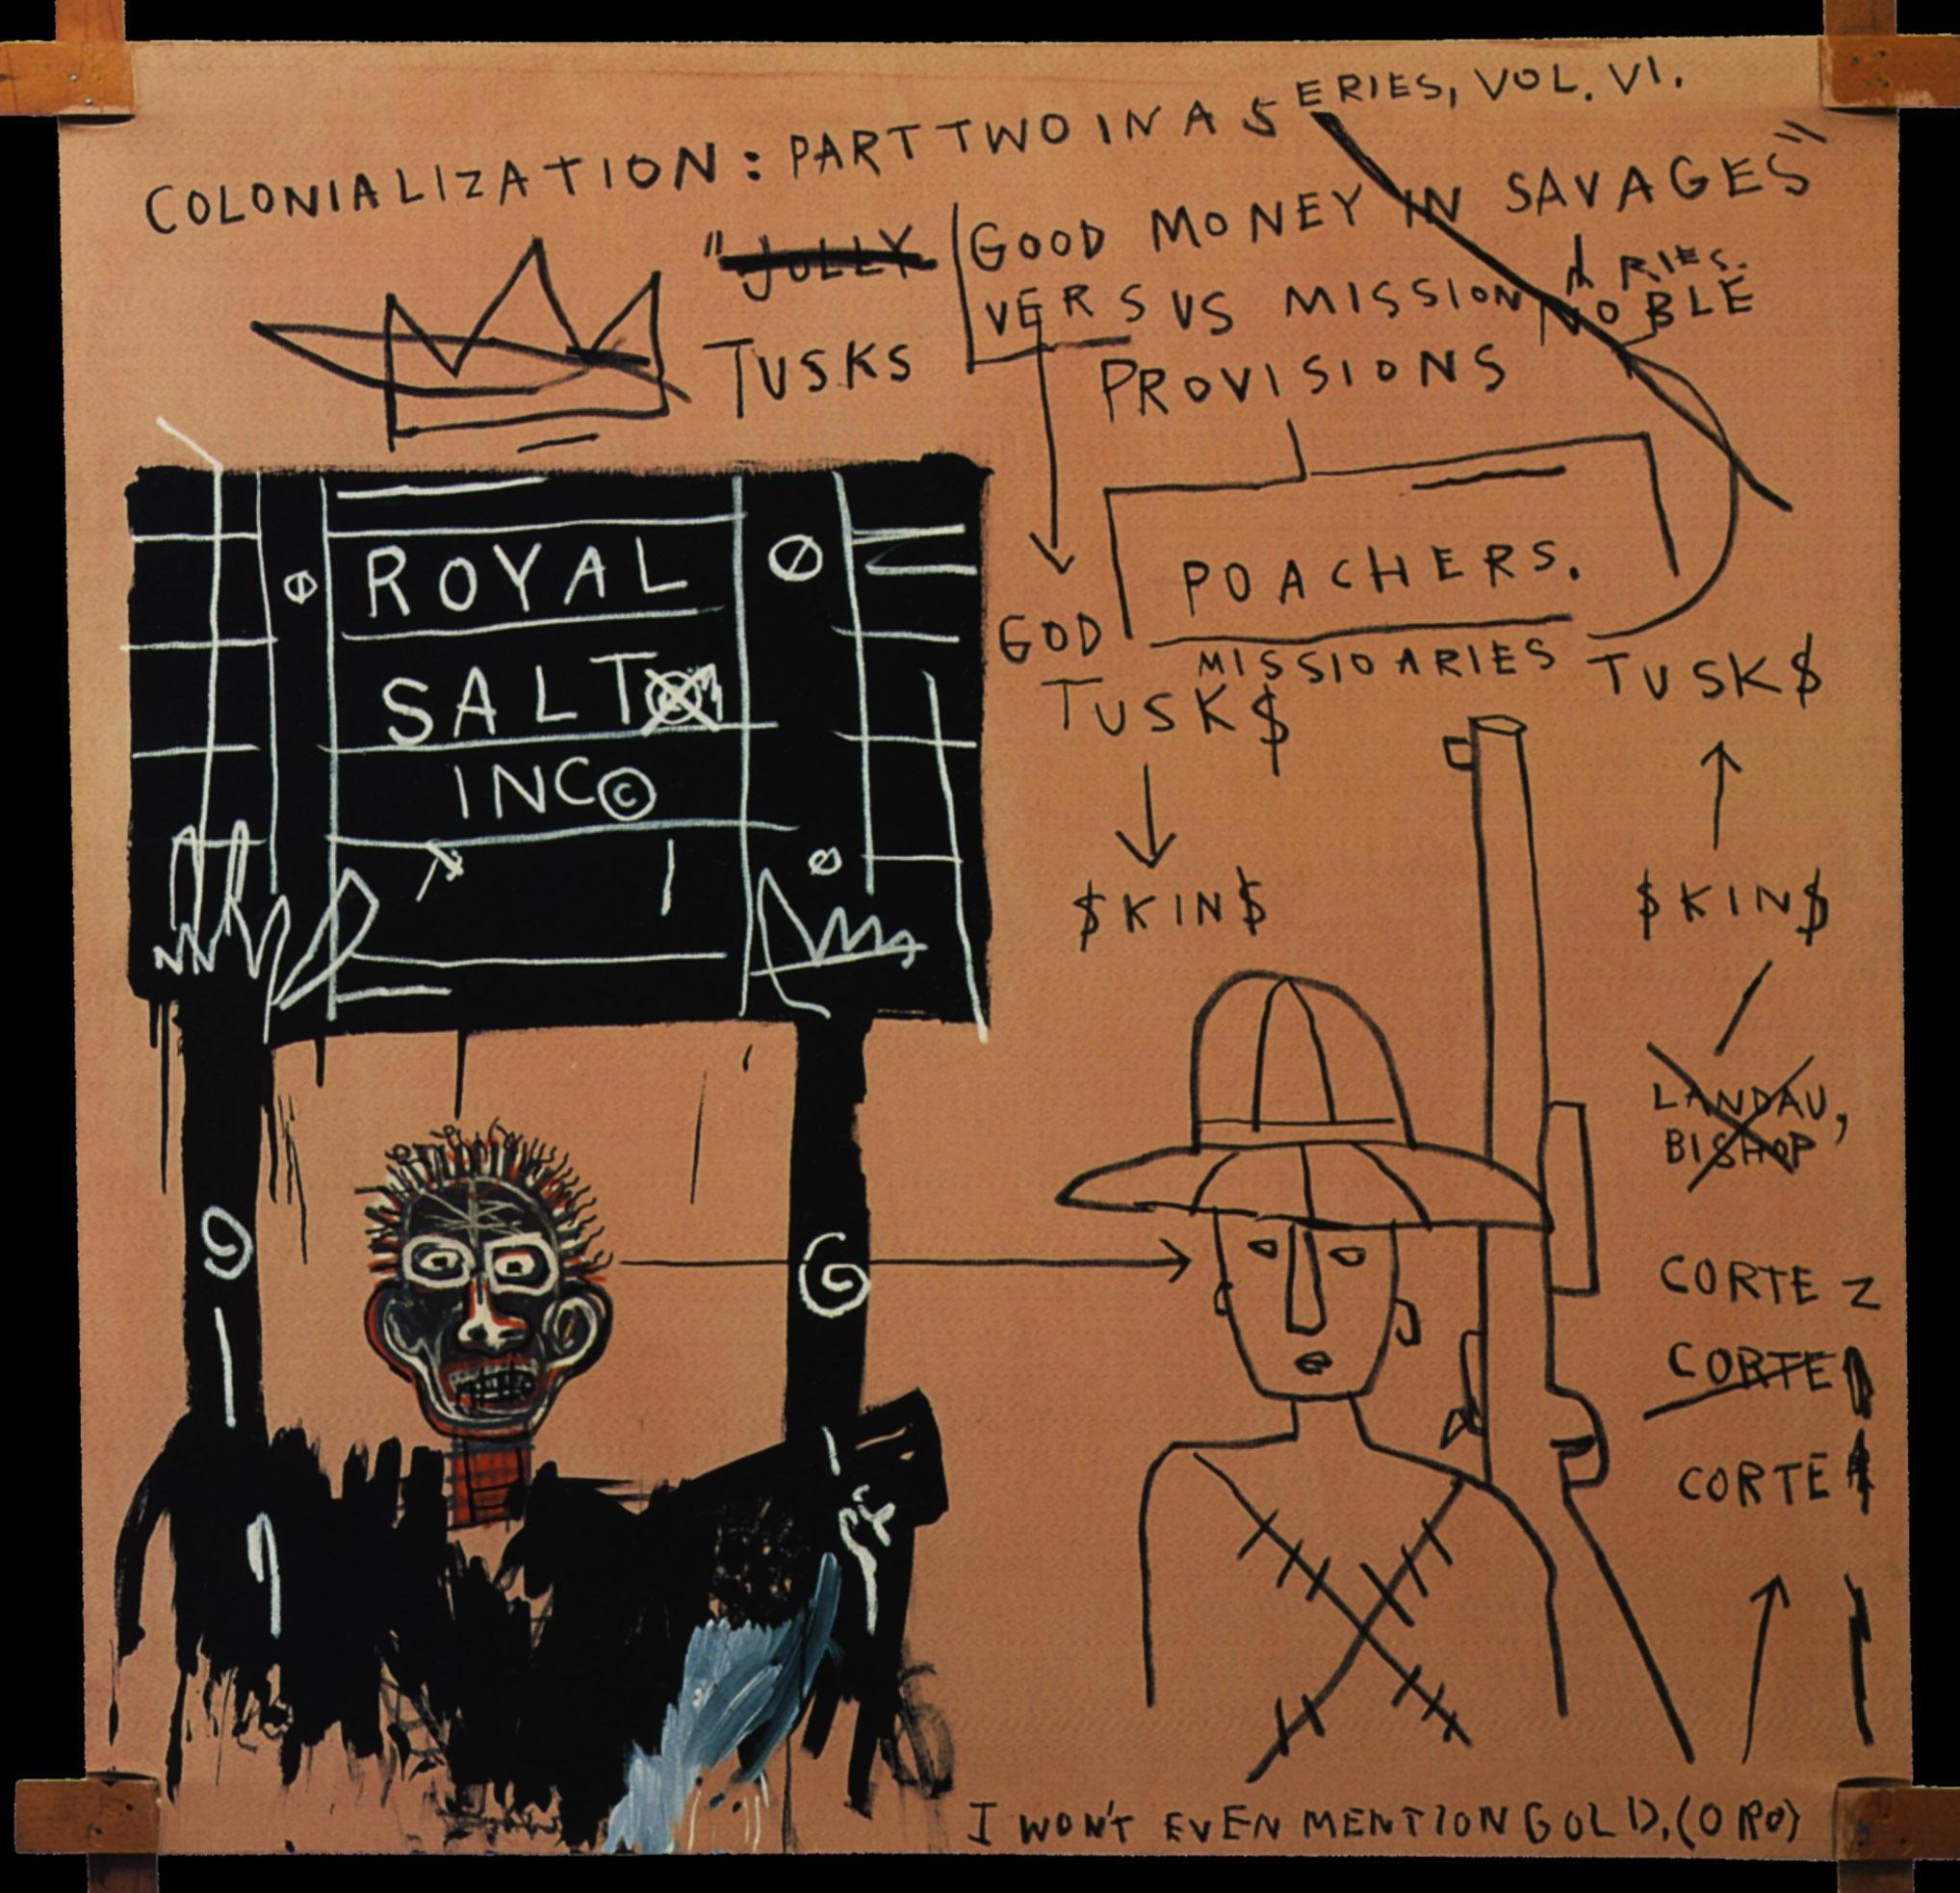 COLONIALIZATION: PART TWO IN A SERIES, VOL. VI.
"JOLLY GOOD MONEY IN SAVAGES"
VERSUS MISSION RIES.
NOBLE
TUSKS
PROVISIONS
ROYAL
SALT
INC©
POACHERS.
GOD
MISSIOARIES
TUSK$
TUSK$
$KIN$
$KIN$
LANDAU,
BISHOP
CORTEZ
CORTE
CORTE
I WON'T EVEN MENTION GOLD, (ORO)